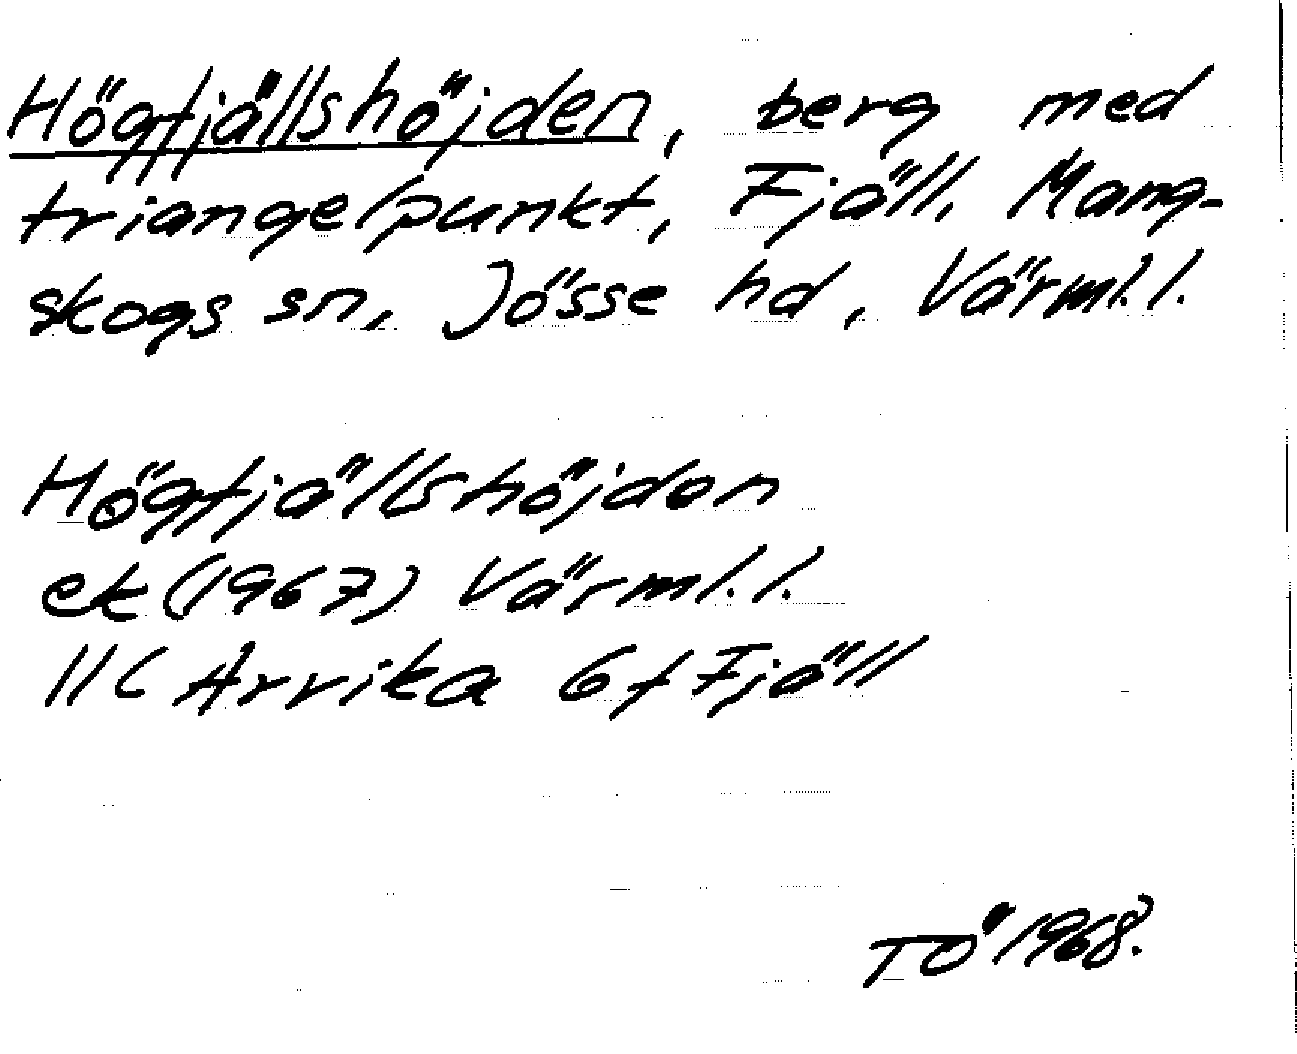 Högfjällshöjden, berg med
triangelpunkt, Fjäll, Mang-
skogs sn, Jösse hd, Värml.l.
Högfjällshöjden
ek (1967) Värml.l.
11C Arvika 6f Fjäll
TÖ 1968.